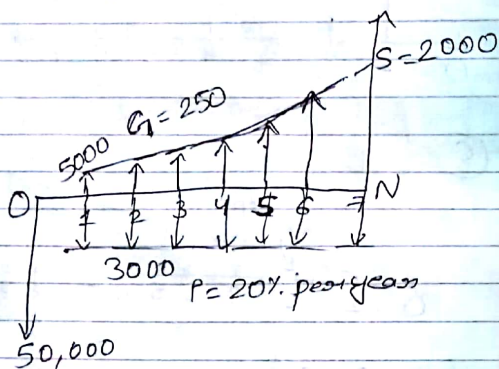 S=2000
G=250
5000
O
N
1 2 3 4 5 6 7
3000
P=20% per year
50,000